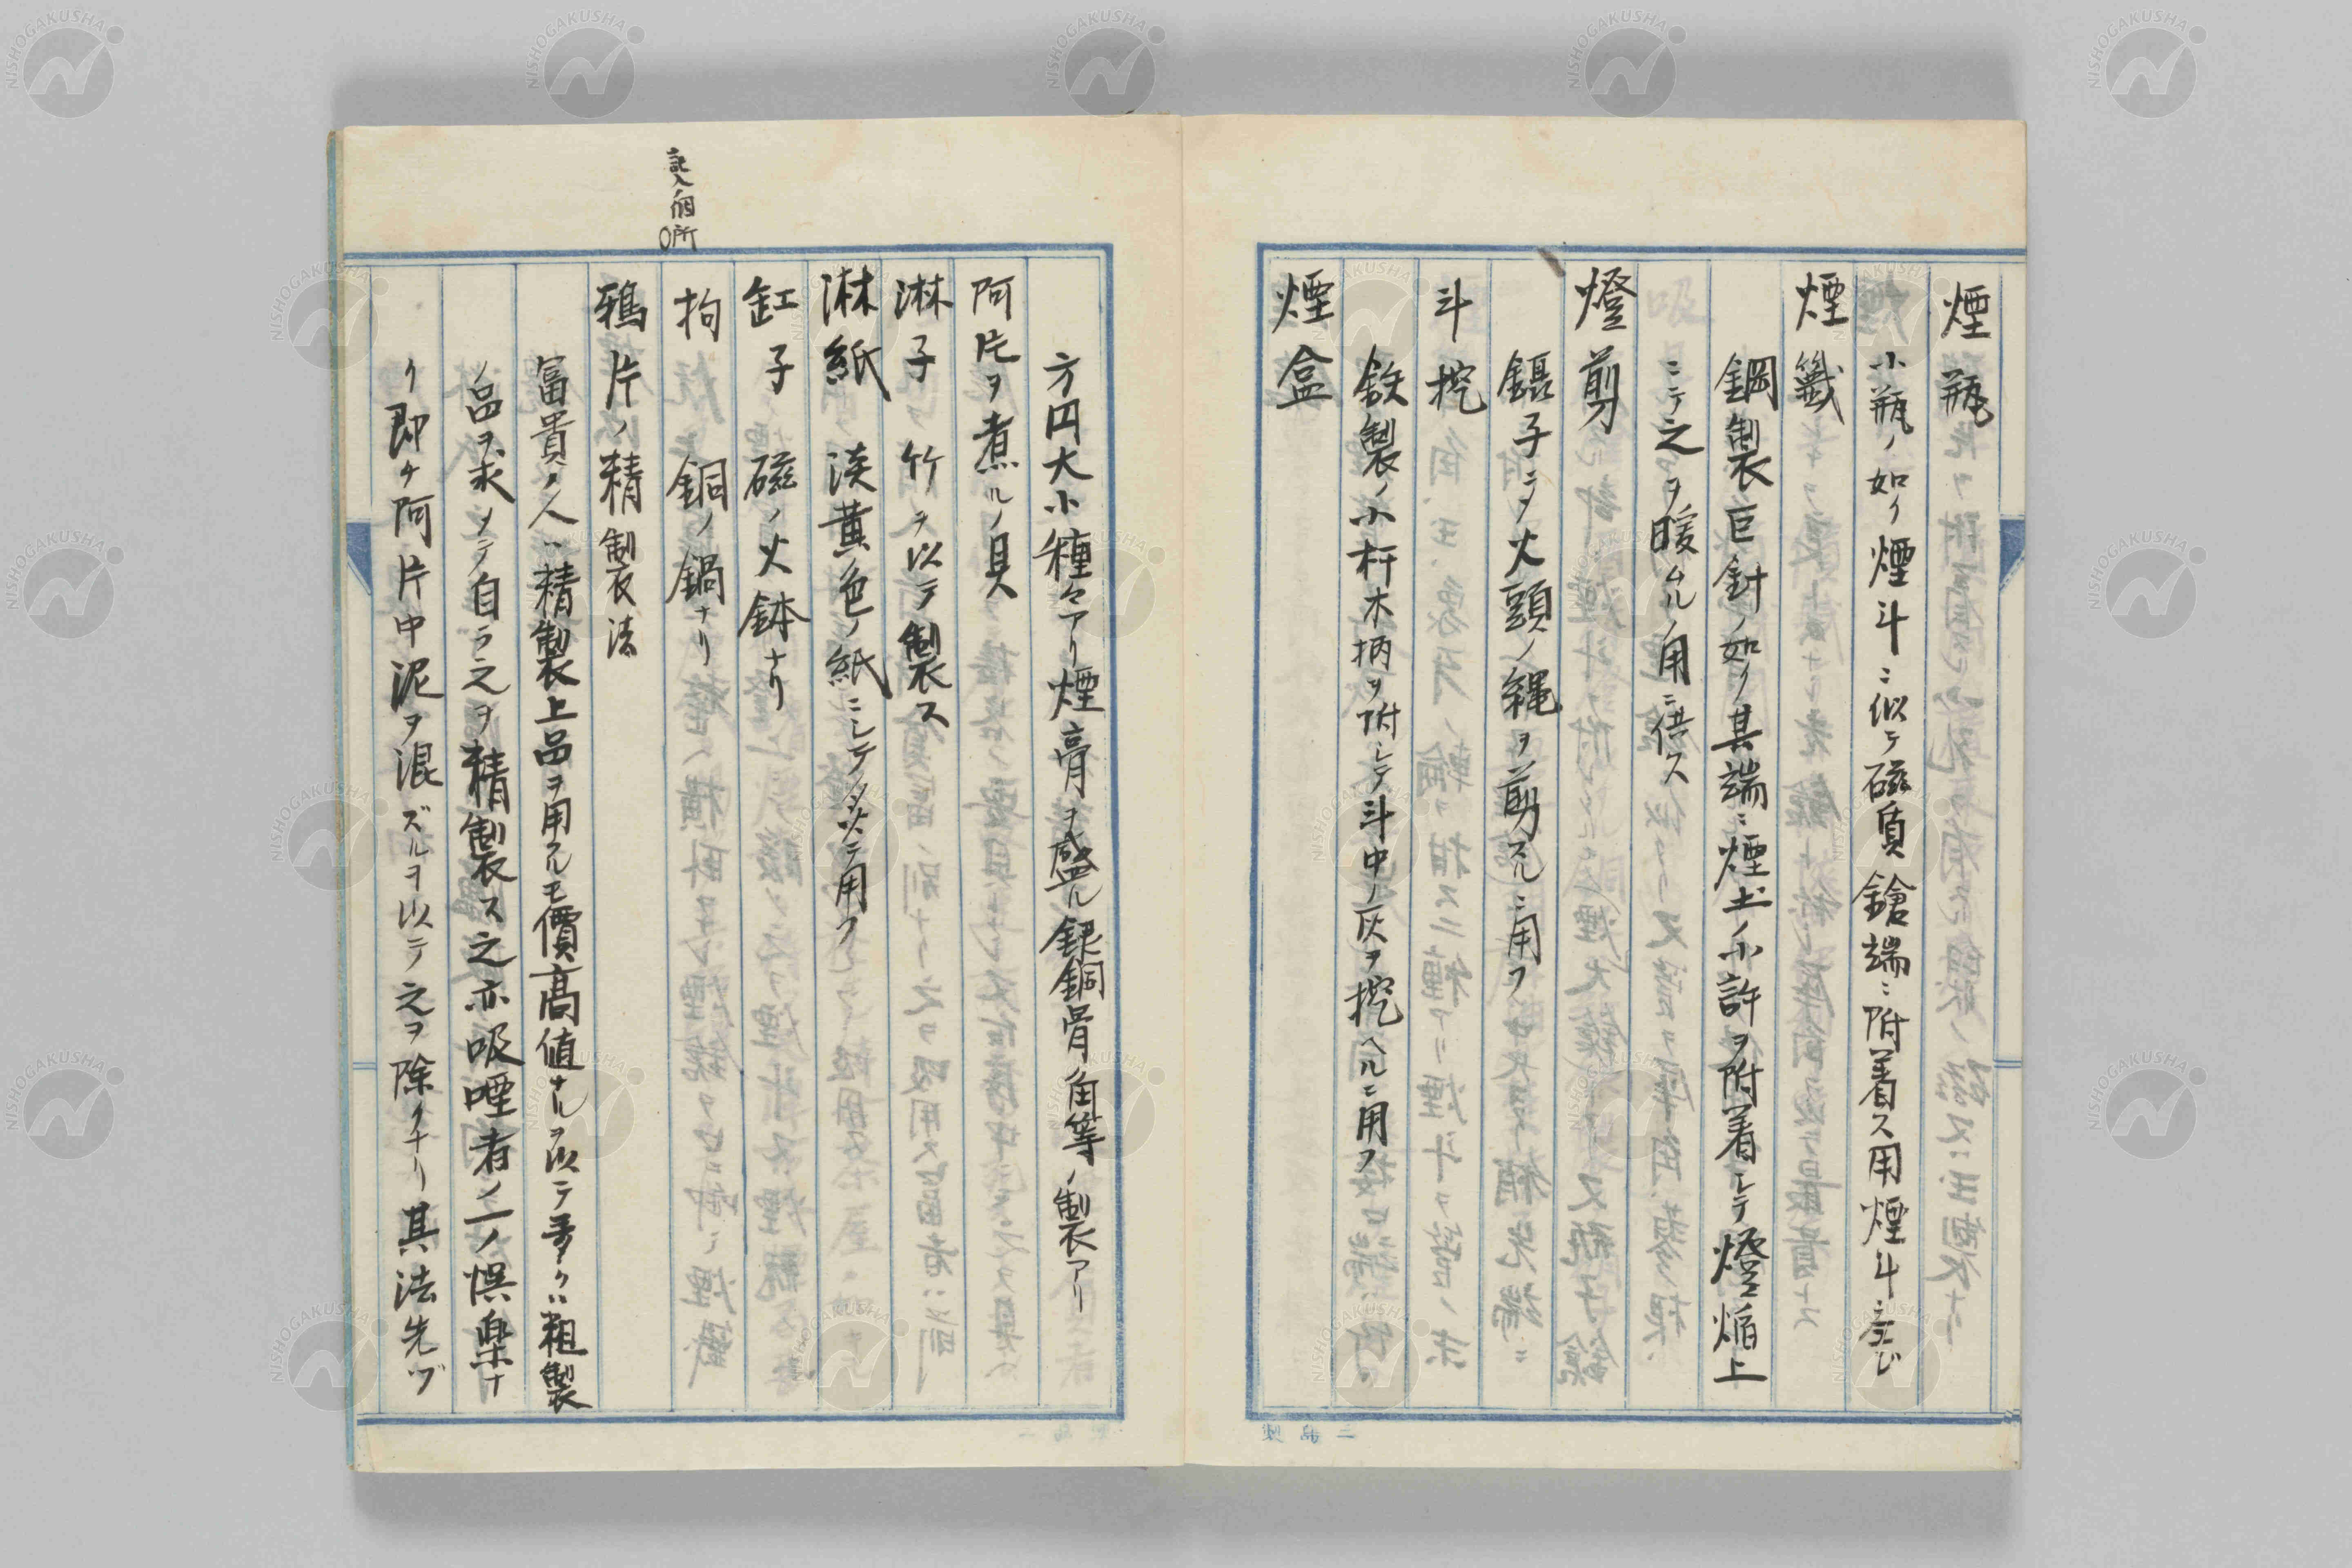 煙瓶
小瓶ノ如ク煙斗ニ似テ磁質鎗端ニ附着ス用煙斗ニ同じ
煙籤
鋼製巨針ノ如ク其端ニ煙土ノ小許ヲ附着シテ燈焔上
ニテ之ヲ暖ムルノ用ニ供ス
燈剪
鑷子ニテ火頭ノ縄ヲ剪スルニ用フ
斗挖
鉄製ノ小杆木柄ヲ附シテ斗中ノ灰ヲ挖ヘルニ用フ
煙盒
方円大小種々アリ煙膏ヲ盛ル銀銅骨角等ノ製アリ
阿片ヲ煮ルノ具
淋子 竹ヲ以テ製ス
淋紙 淡黄色ノ紙ニシテ炎テ用フ
缸子 磁ノ火鉢ナリ
拘 銅ノ鍋ナリ
記入個所
〇
鴉片ノ精製法
富貴ノ人ハ精製上品ヲ用フルモ價高値ナルヲ以テ多クハ粗製
ノ品ヲ求メテ自ラ之ヲ精製ス之亦吸煙者ノ一ノ娯楽ナ
リ即チ阿片中泥ヲ混ズルヲ以テ之ヲ除クナリ其法先ヅ
NISHOGAKUSHA